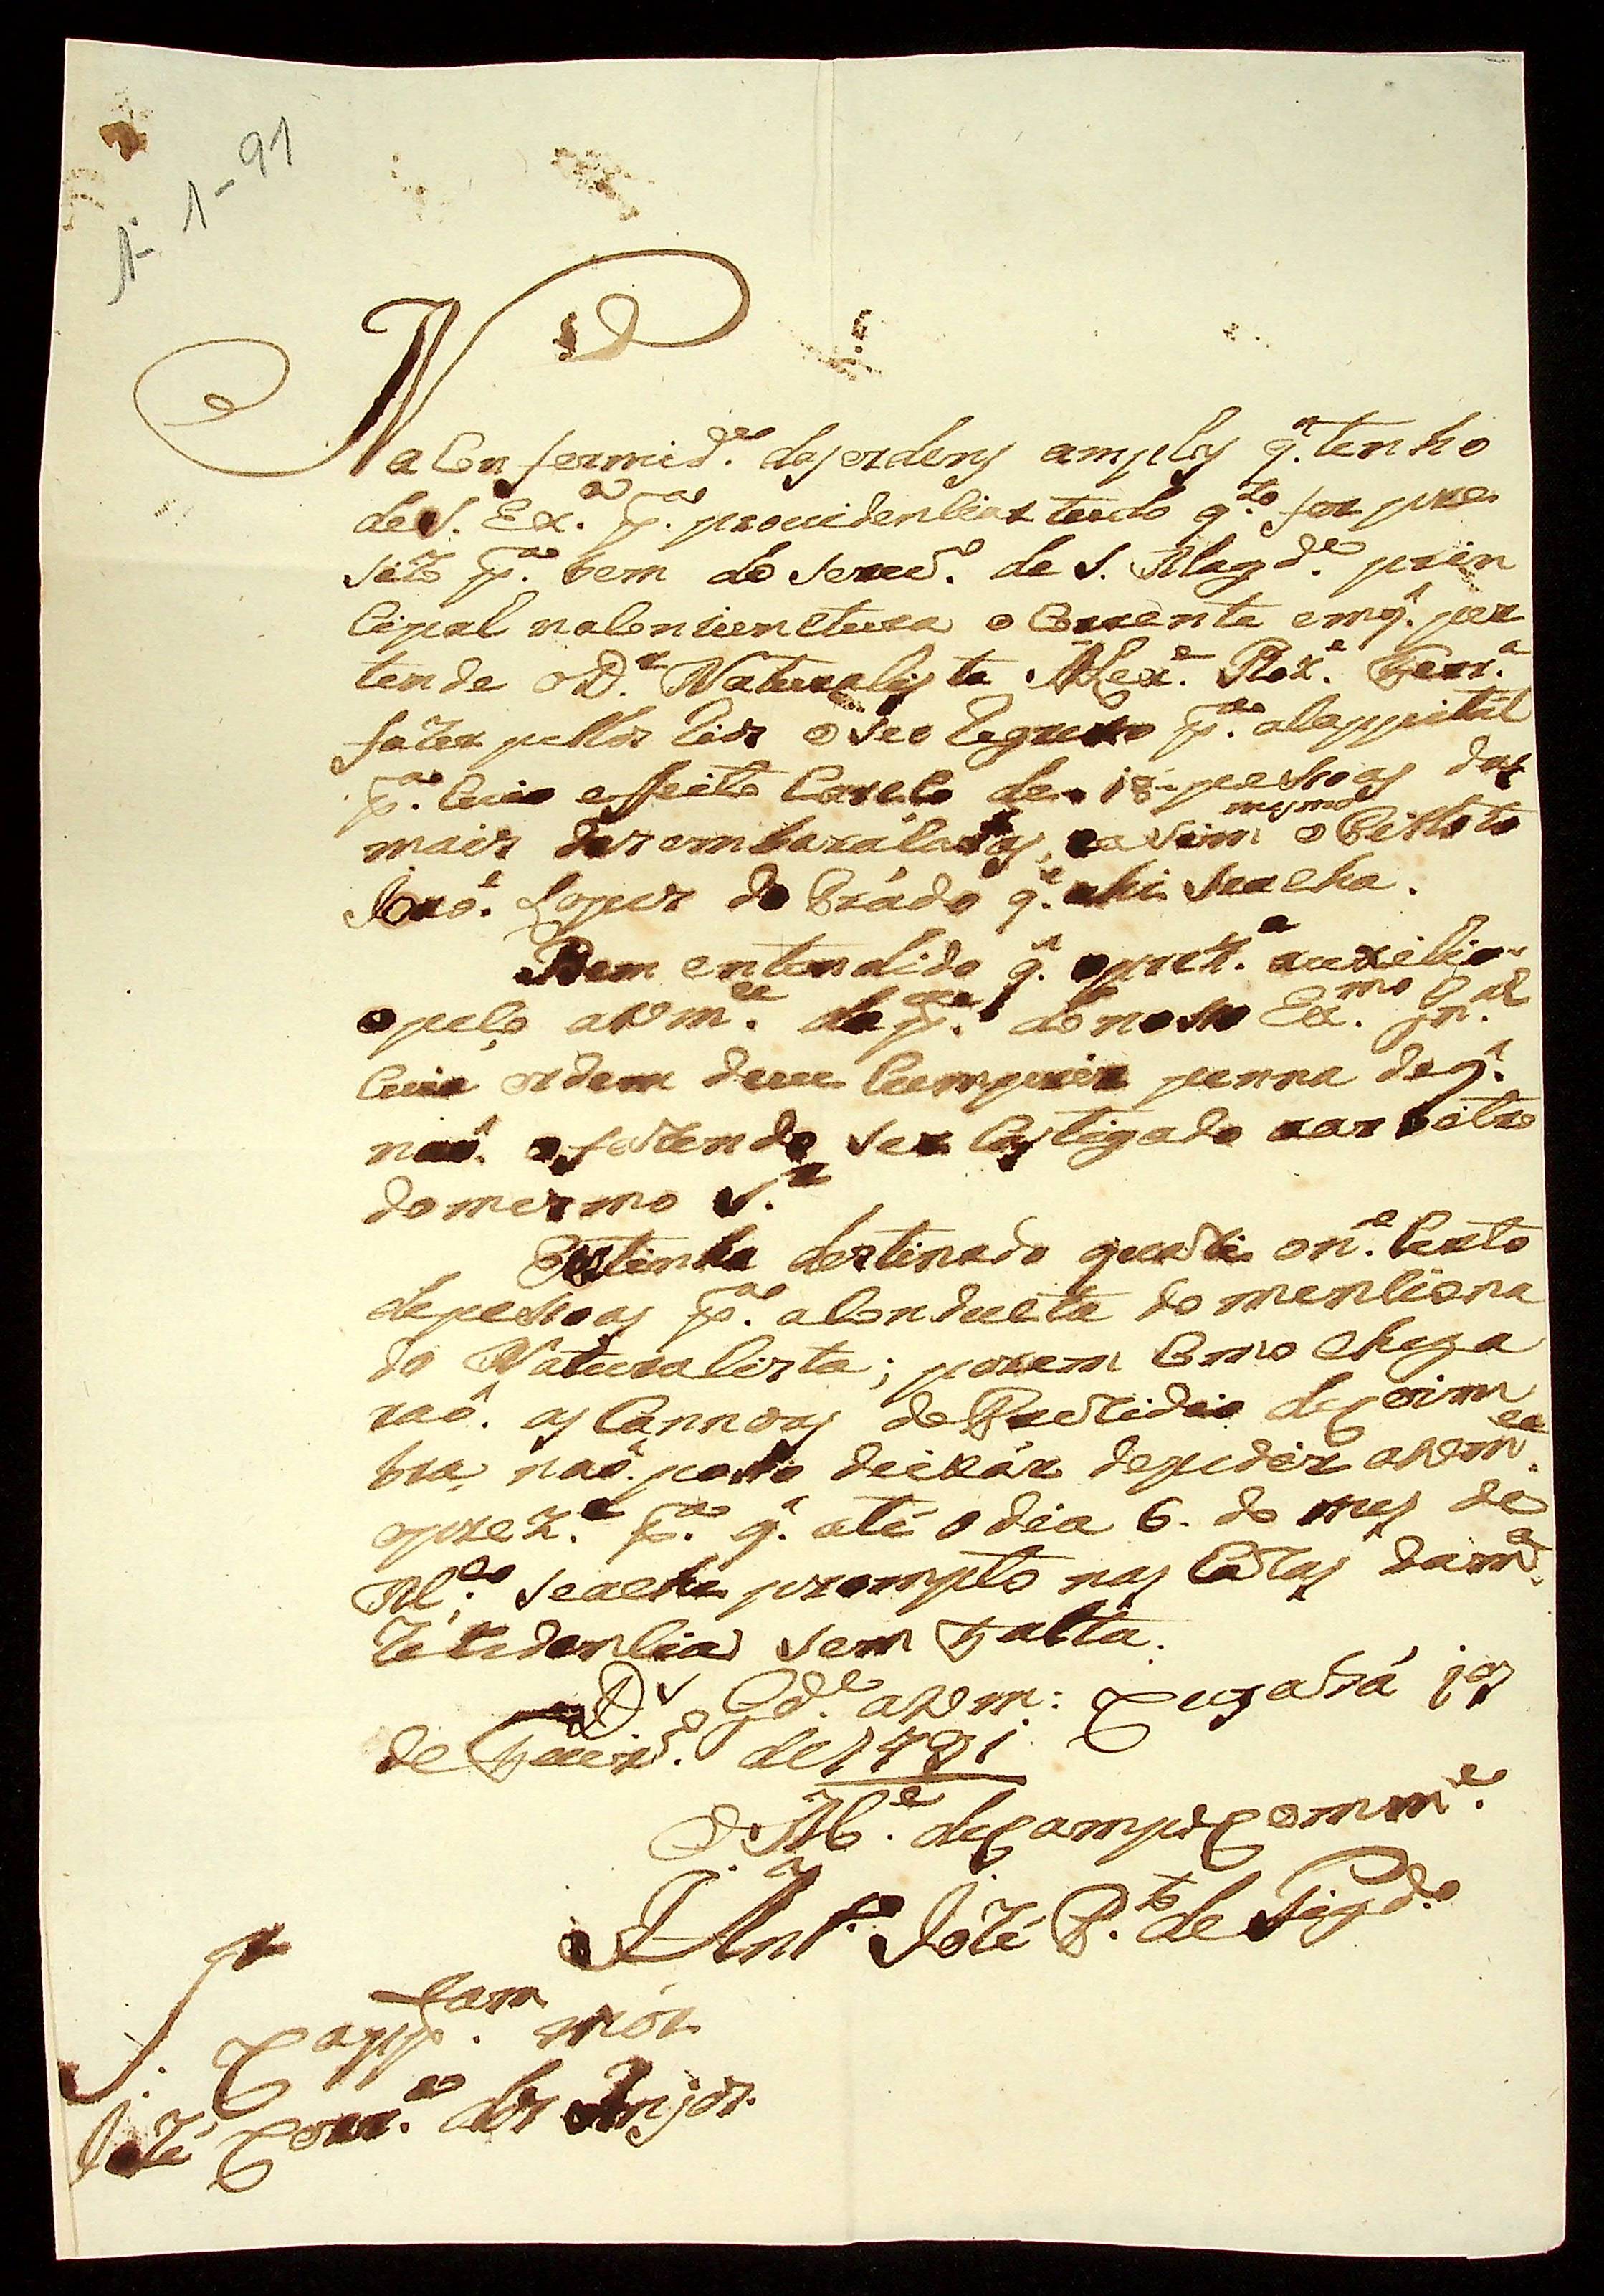 A- 1-91
Na Conformid.e das ordens amplas q. tenho
de S. Ex.a p.a providenciar tudo q.to for pre
sizo p.a bem do Serv.o de S. Mag.de prin
cipal na Conjunctura o Corrente em q. per
tende o D.r Naturalista Alex.e Roz.e Ferr.a
fazer pellos rios o seo regreso p.a a Cappital
p.a Cujo effeito Careço de 18 pessoas das
mais dezembaraçadas, e asim mesmo o Pilloto
João. Lopes do Prádo q. ahi se acha.
Bem entendido q. o prez.e auxilio
o peço a Vm.ce da p.te do nosso Ex.mo Gn.al
Cuia ordem deve Cumprir penna de q.
não. o fazendo ser Castigado a arbitrio
do mesmo S.r
Eu tinha destinado quazi on.e Certo
de pessoas p.a a Conducta do menciona
do Naturalista; porem Como chega
raõ. as Cannoas do Prezidio de Coim
bra, naõ. posso deixár de pedir a Vm.ce
o prez.e p.a q. até o dia 6. do mes de
M.ço se ache prompto nas Cazas da m.a
rezidencia sem falta.
D.s G.de a Vm: Cuyabá 19
de Fever.o de 1791
O M.e de Campo Comm.e
Ant.o José P.to de Figd.o
S.r Capp.tam mór
José Corr.a dos Anjos.